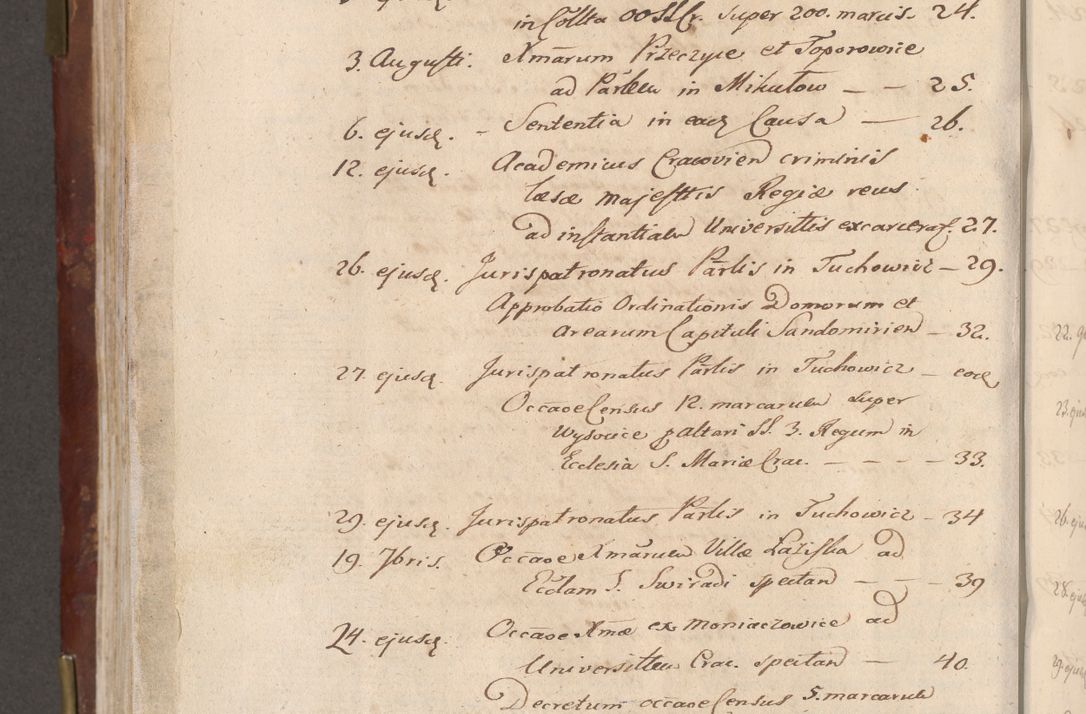 in Collta OO SS Cr. Super 200. marcis. 24.
3. Augusti. Xmãrum Przeczyce et Toporowice
ad Partem in Mikułow — — 25.
6. ejusd. - Sententia in ead Causa — 26.
12. ejusd. Academicus Cracovien criminis
læsæ majesttis Regiæ reus
ad instantiam Universittis excarcerat. 27.
26. ejusd. Jurispatronatus Partis in Tuchowicz — 29.
Approbatio Ordinationis Domorum et
Arearum Capituli Sandomirien — 32.
27. ejusd. Jurispatronatus Partis in Tuchowicz — eod
Occãoe Census 12. marcarum super
Wysocice p altari SS. 3. Regum in
Ecclesia S. Mariæ Crac. — — — — 33.
29. ejusd. Jurispatronatus Partis in Tuchowicz — 34
19. 7bris. Occãoe Xmãrum Villæ Łaziska ad
Ecclam S. Swiradi spectan — — — 39
24. ejusd. Occãoe Xmæ ex Moniaczowice ad
Universittem Crac. spectan — 40.
Decretum occãoe Census 5. marcarum